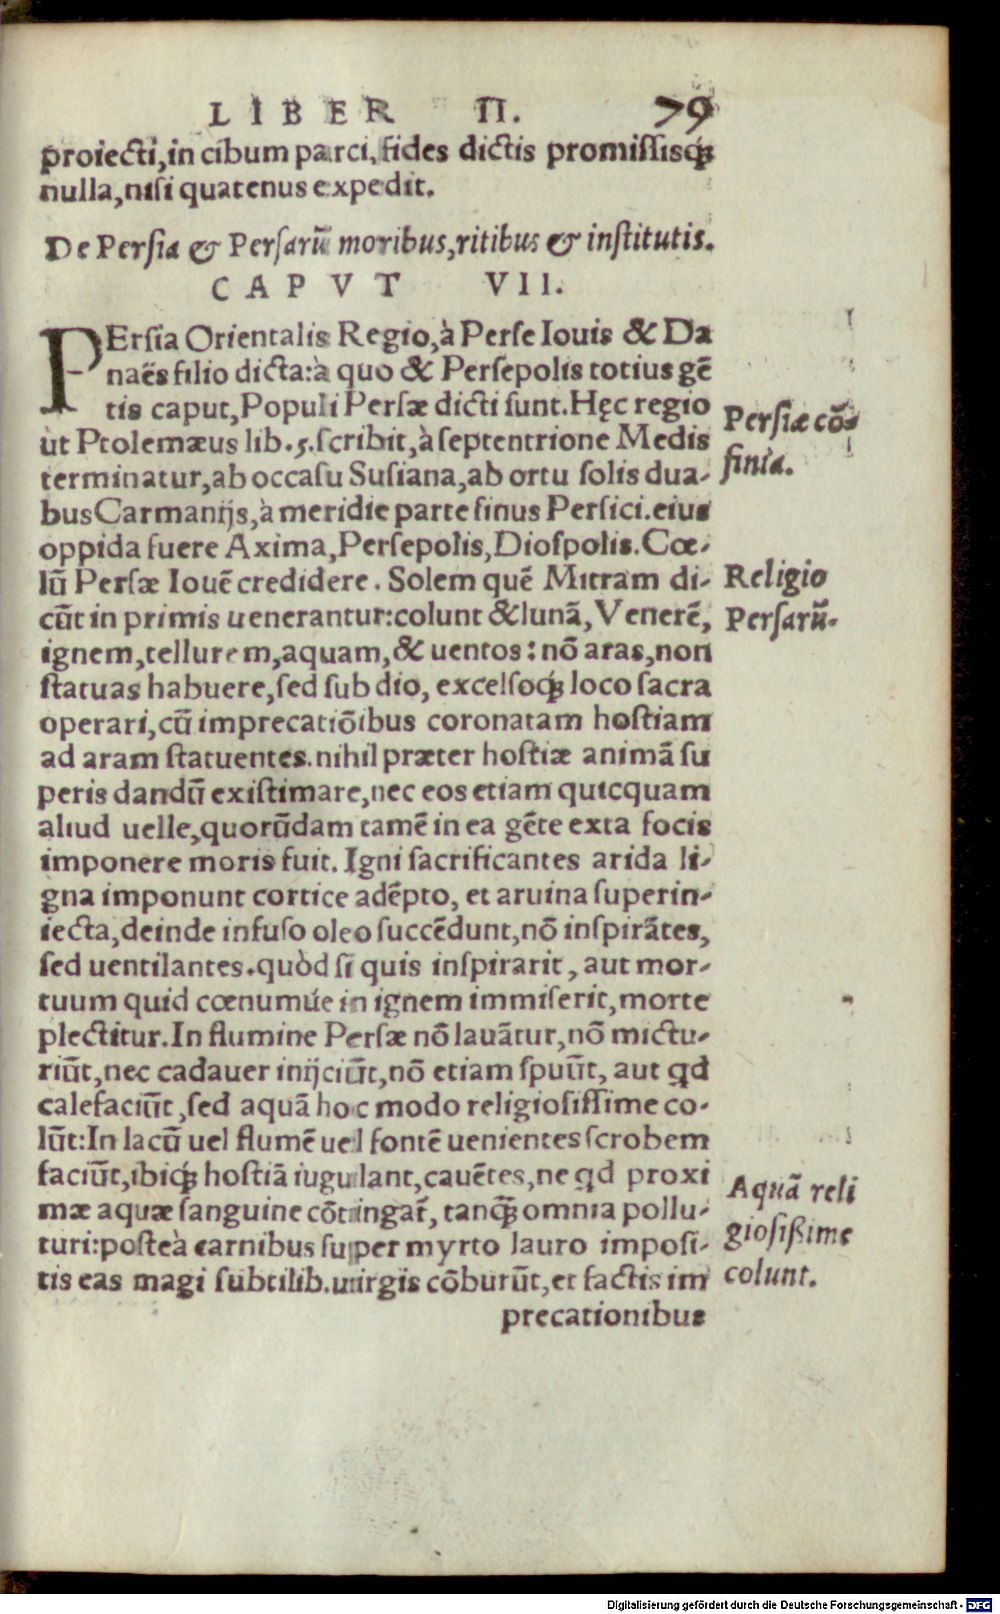 LIBER II. 79
proiecti, in cibum parci, fides dictis promissisqꝫ
nulla, nisi quatenus expedit.
De Persia & Persarū moribus, ritibus & institutis.
CAPVT VII.
PErsia Orientalis Regio, à Perse Iouis & Da
naës filio dicta: à quo & Persepolis totius gē
tis caput, Populi Persæ dicti sunt. Hęc regio
ut Ptolemæus lib. 5. scribit, à septentrione Medis
terminatur, ab occasu Susiana, ab ortu solis dua-
bus Carmanijs, à meridie parte sinus Persici. eius
oppida fuere Axima, Persepolis, Diospolis. Cœ-
lū Persæ Iouē credidere. Solem quē Mitram di-
cūt in primis uenerantur: colunt & lunā, Venerē,
ignem, tellurem, aquam, & uentos: nō aras, non
statuas habuere, sed sub dio, excelsoqꝫ loco sacra
operari, cū imprecatiōibus coronatam hostiam
ad aram statuentes. nihil præter hostiæ animā su
peris dandū existimare, nec eos etiam quicquam
aliud uelle, quorūdam tamē in ea gēte exta focis
imponere moris fuit. Igni sacrificantes arida li-
gna imponunt cortice adēpto, et aruina superin-
iecta, deinde infuso oleo succēdunt, nō inspirātes,
sed uentilantes. quòd si quis inspirarit, aut mor-
tuum quid cœnumúe in ignem immiserit, morte
plectitur. In flumine Persæ nō lauātur, nō mictu-
riūt, nec cadauer inijciūt, nō etiam spuūt, aut qd
calefaciūt, sed aquā hoc modo religiosissime co-
lūt: In lacū uel flumē uel fontē uenientes scrobem
faciūt, ibiqꝫ hostiā iugulant, cauētes, ne qd proxi
mæ aquæ sanguine cōtingat̄, tanqꝫ̄ omnia pollu-
turi: posteà carnibus super myrto lauro imposi-
tis eas magi subtilib. uirgis cōburūt, et factis im
precationibus
Persiæ cō-
finia.
Religio
Persarū.
Aquā reli
giosißime
colunt.
Digitalisierung gefördert durch die Deutsche Forschungsgemeinschaft - DFG